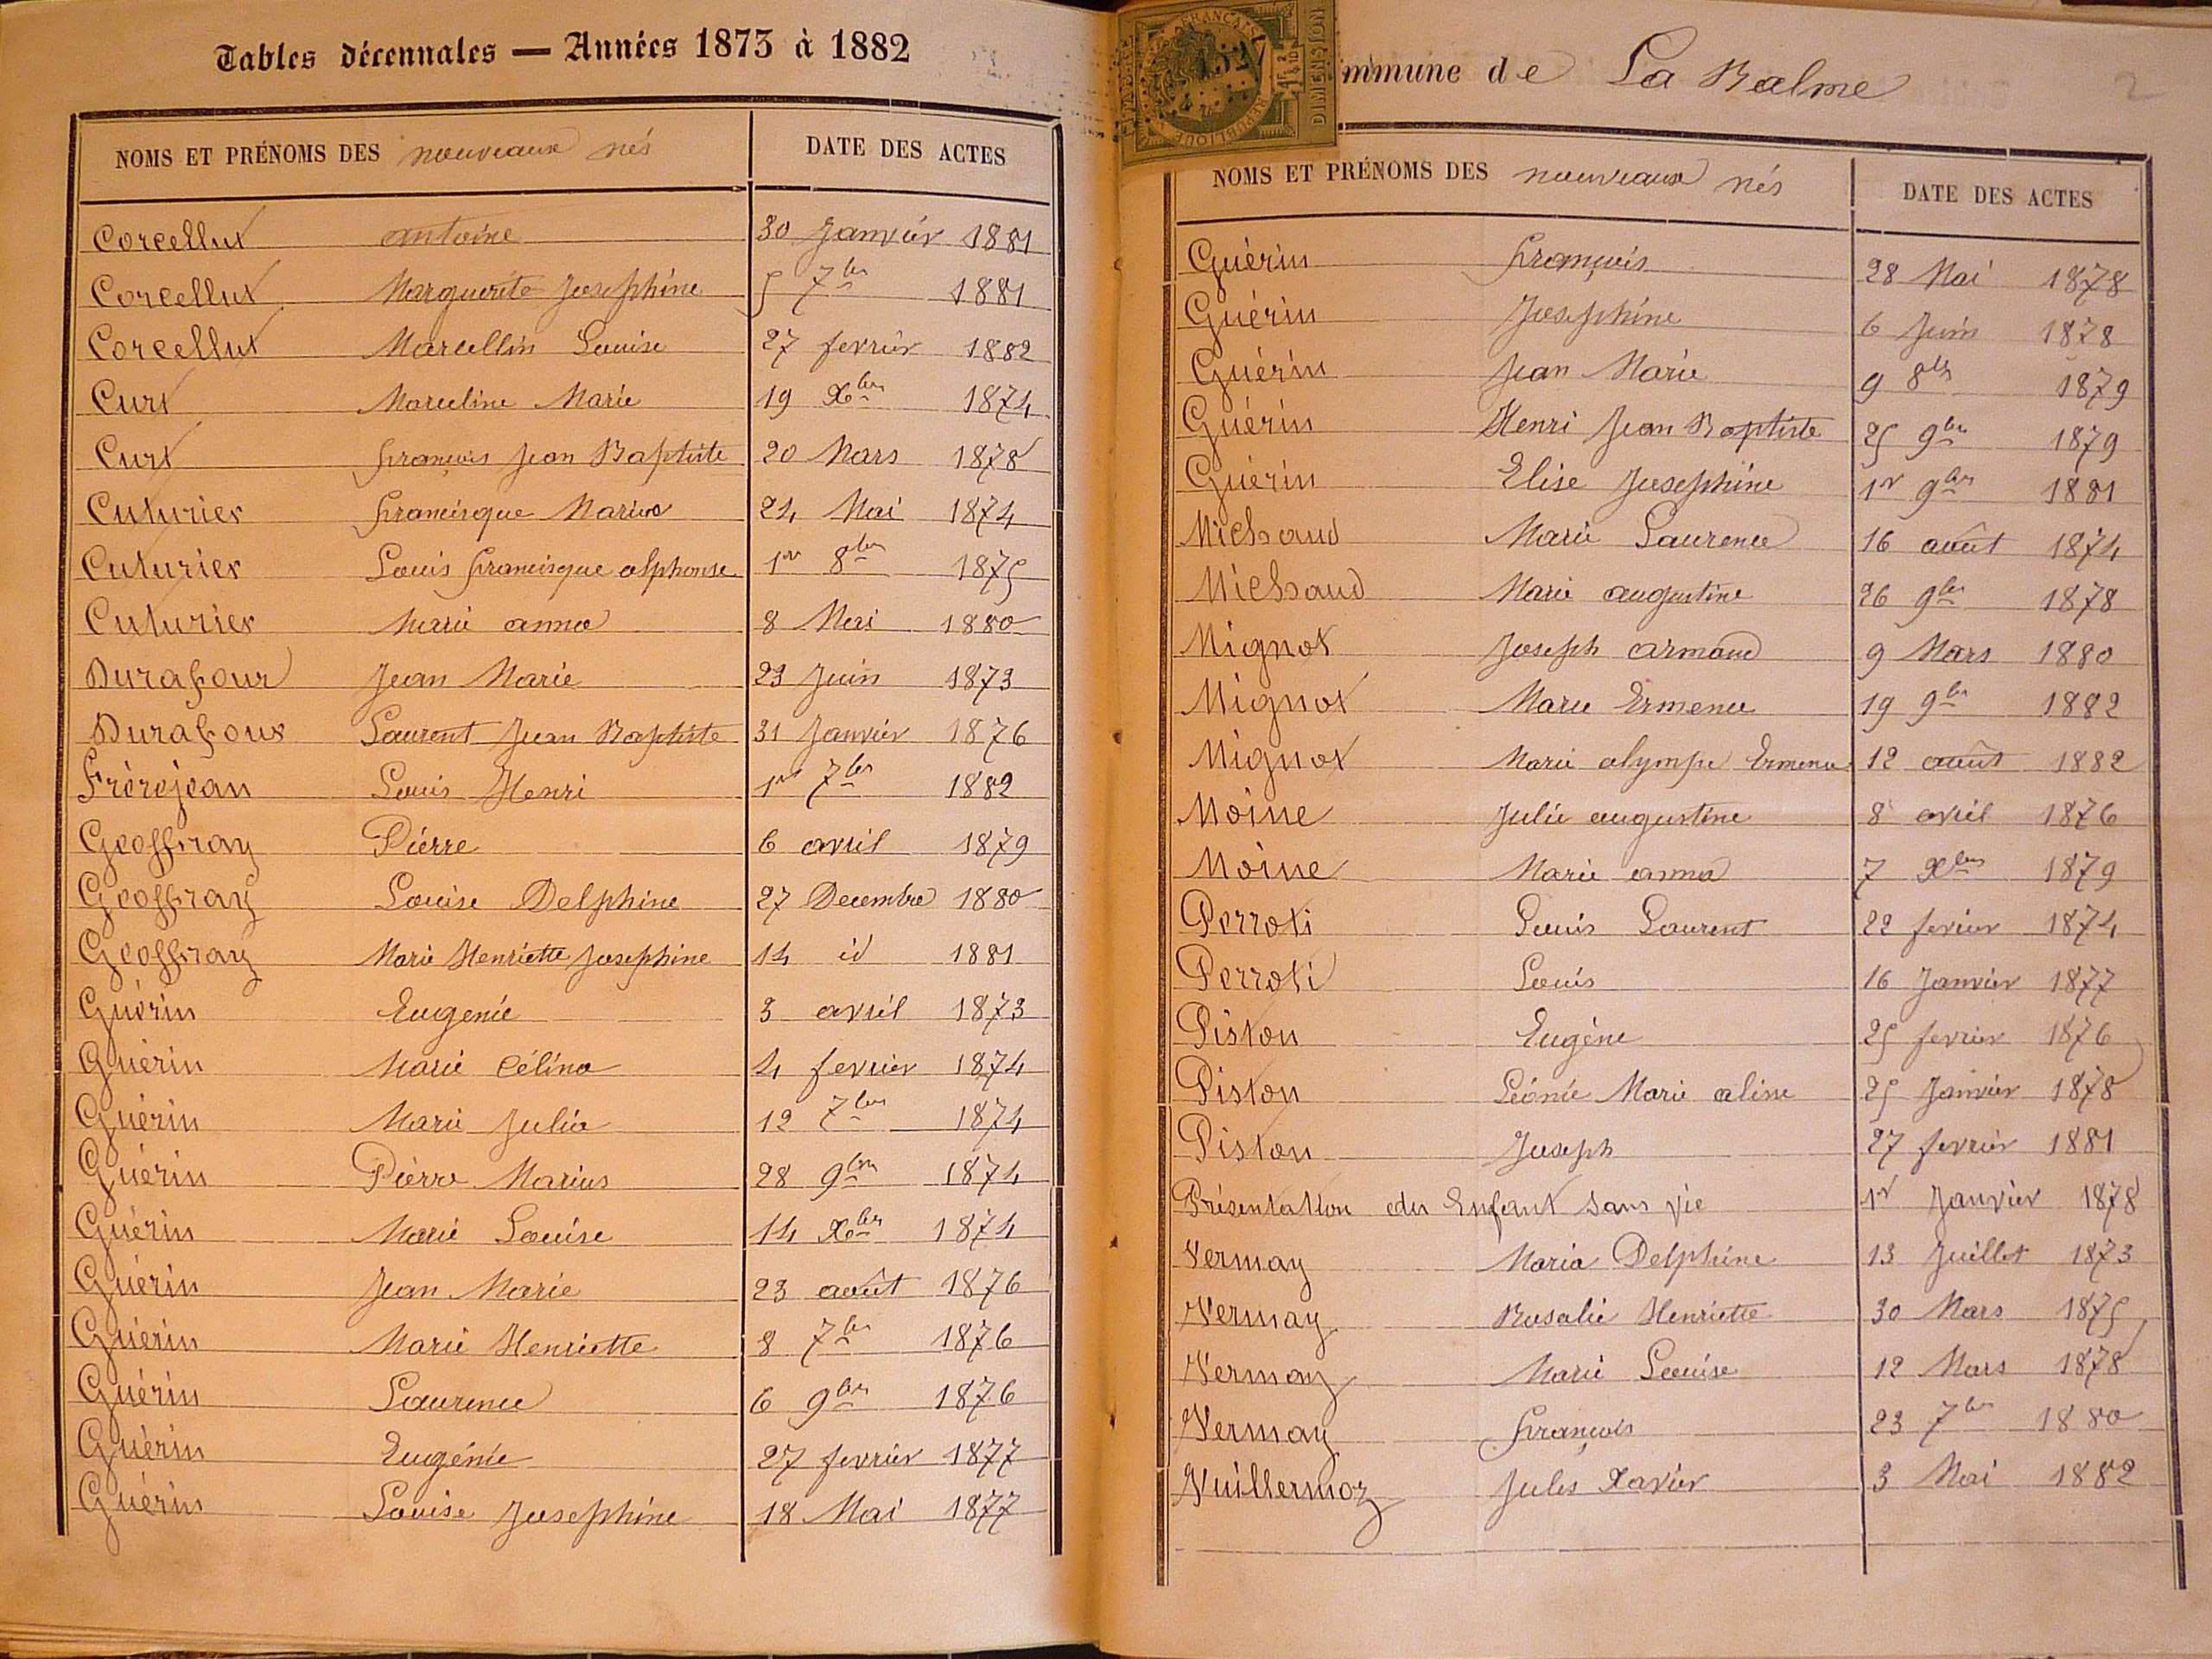 Tables décennales — Années 1873 à 1882
NOMS ET PRÉNOMS DES nouveaux nés DATE DES ACTES
Corcellut antoine 30 Janvier 1881
Corcellut Marguerite Josephine 5 7bre 1881
Corcellut Marcellin Louise 27 fevrier 1882
Curt Marceline Marie 19 Xbre 1874
Curt françois Jean Baptiste 20 Mars 1878
Cuturier francisque Marius 24 Mai 1874
Cuturier Louis francisque alphonse 1er 8bre 1875
Cuturier Marie anna 8 Mai 1880
Durafour Jean Marie 23 Juin 1873
Durafour Laurent Jean Baptiste 31 Janvier 1876
Frèrejean Louis Henri 1er 7bre 1882
Geoffray Pierre 6 avril 1879
Geoffray Louise Delphine 27 Decembre 1880
Geoffray Marie Henriette Josephine 14 id 1881
Guérin Eugenie 3 avril 1873
Guérin Marie Célina 4 fevrier 1874
Guérin Marie Julia 12 7bre 1874
Guérin Pierre Marius 28 9bre 1874
Guérin Marie Louise 14 Xbre 1874
Guérin Jean Marie 23 août 1876
Guérin Marie Henriette 8 7bre 1876
Guérin Laurence 6 9bre 1876
Guérin Eugénie 27 fevrier 1877
Guérin Louise Josephine 18 Mai 1877
RÉPUBLIQUE FRANÇAISE DIMENSION
mmune de La Balme 2
NOMS ET PRÉNOMS DES nouveaux nés DATE DES ACTES
Guérin françois 28 Mai 1878
Guérin Josephine 6 Juin 1878
Guérin Jean Marie 9 8bre 1879
Guérin Henri Jean Baptiste 25 9bre 1879
Guérin Elise Josephine 1er 9bre 1881
Michaud Marie Laurence 16 août 1874
Michaud Marie augustine 26 9bre 1878
Mignot Joseph armand 9 Mars 1880
Mignot Marie Ermence 19 9bre 1882
Mignot Marie olympe Ermence 12 août 1882
Moine Julie augustine 8 avril 1876
Moine Marie anna 7 Xbre 1879
Perroti Louis Laurent 22 fevrier 1874
Perroti Louis 16 Janvier 1877
Piston Eugène 25 fevrier 1876
Piston Léonie Marie aline 25 Janvier 1878
Piston Joseph 27 fevrier 1881
Présentation du Enfant sans vie 1er Janvier 1878
Vermay Maria Delphine 13 Juillet 1873
Vermay Rosalie Henriette 30 Mars 1875
Vermay Marie Louise 12 Mars 1878
Vermay françois 23 7bre 1880
Vuillermoz Jules Xavier 3 Mai 1882